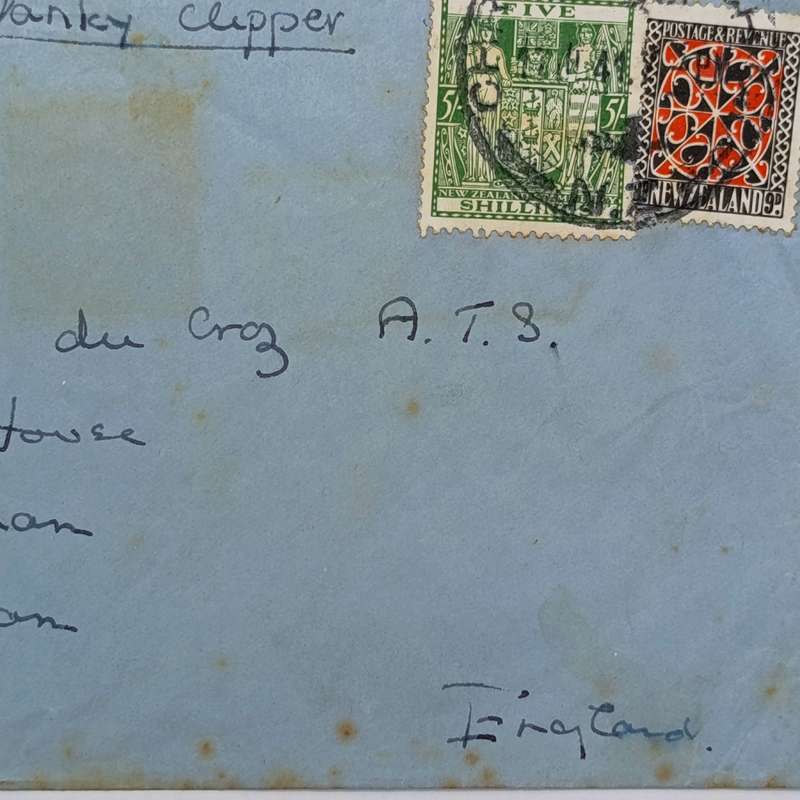 Yanky Clipper
FIVE
5/- 5/-
NEW ZEALAND
SHILLINGS
POSTAGE & REVENUE
NEW ZEALAND 9D
du Croz A.T.S.
House
England.